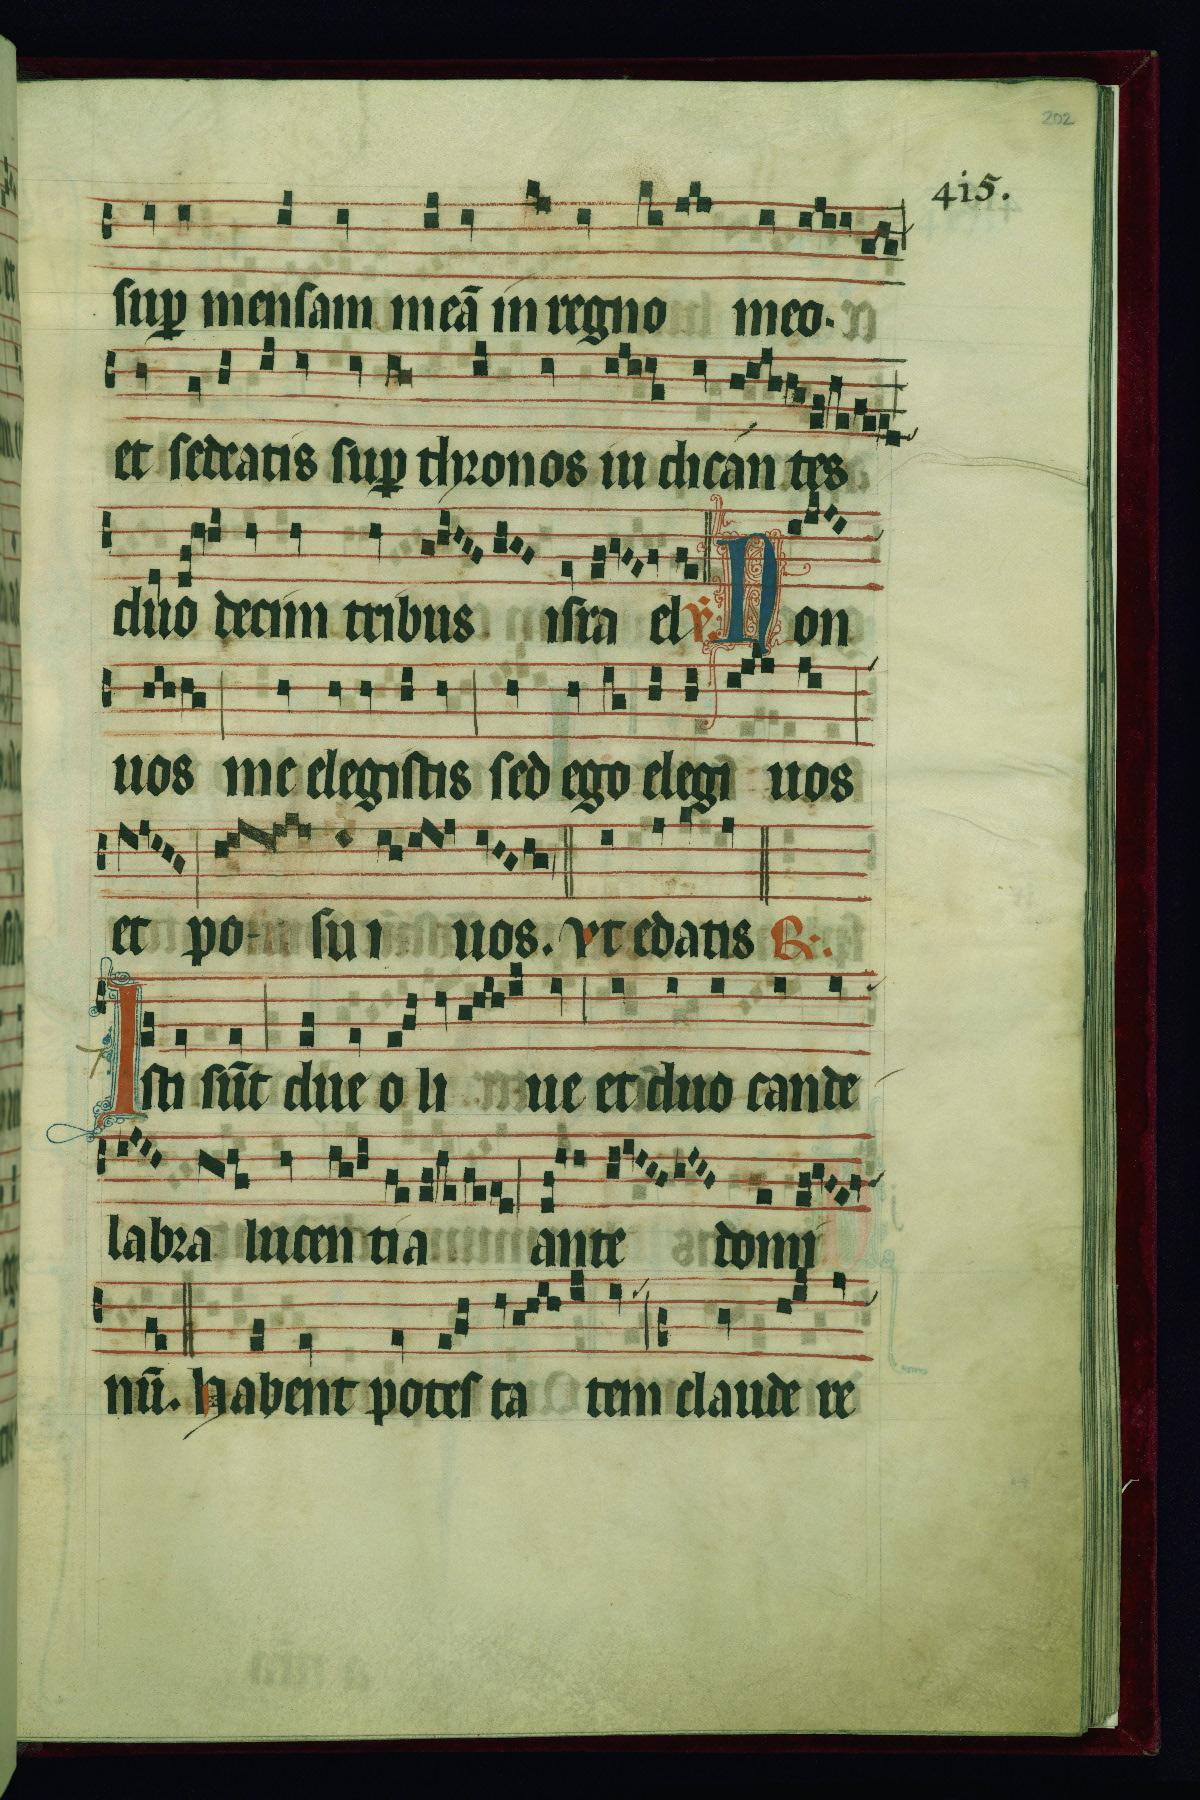 202
415.
sup mensam meā in regno meo.
et sedeatis sup thronos iu dican tes
duo decim tribus isra el ℣. Non
uos me elegistis sed ego elegi uos
et po- su i uos. vt edatis ℟.
Isti sūt due o li ue et duo cande
labra lucen tia ante domi
nū. habent potes ta tem claude re